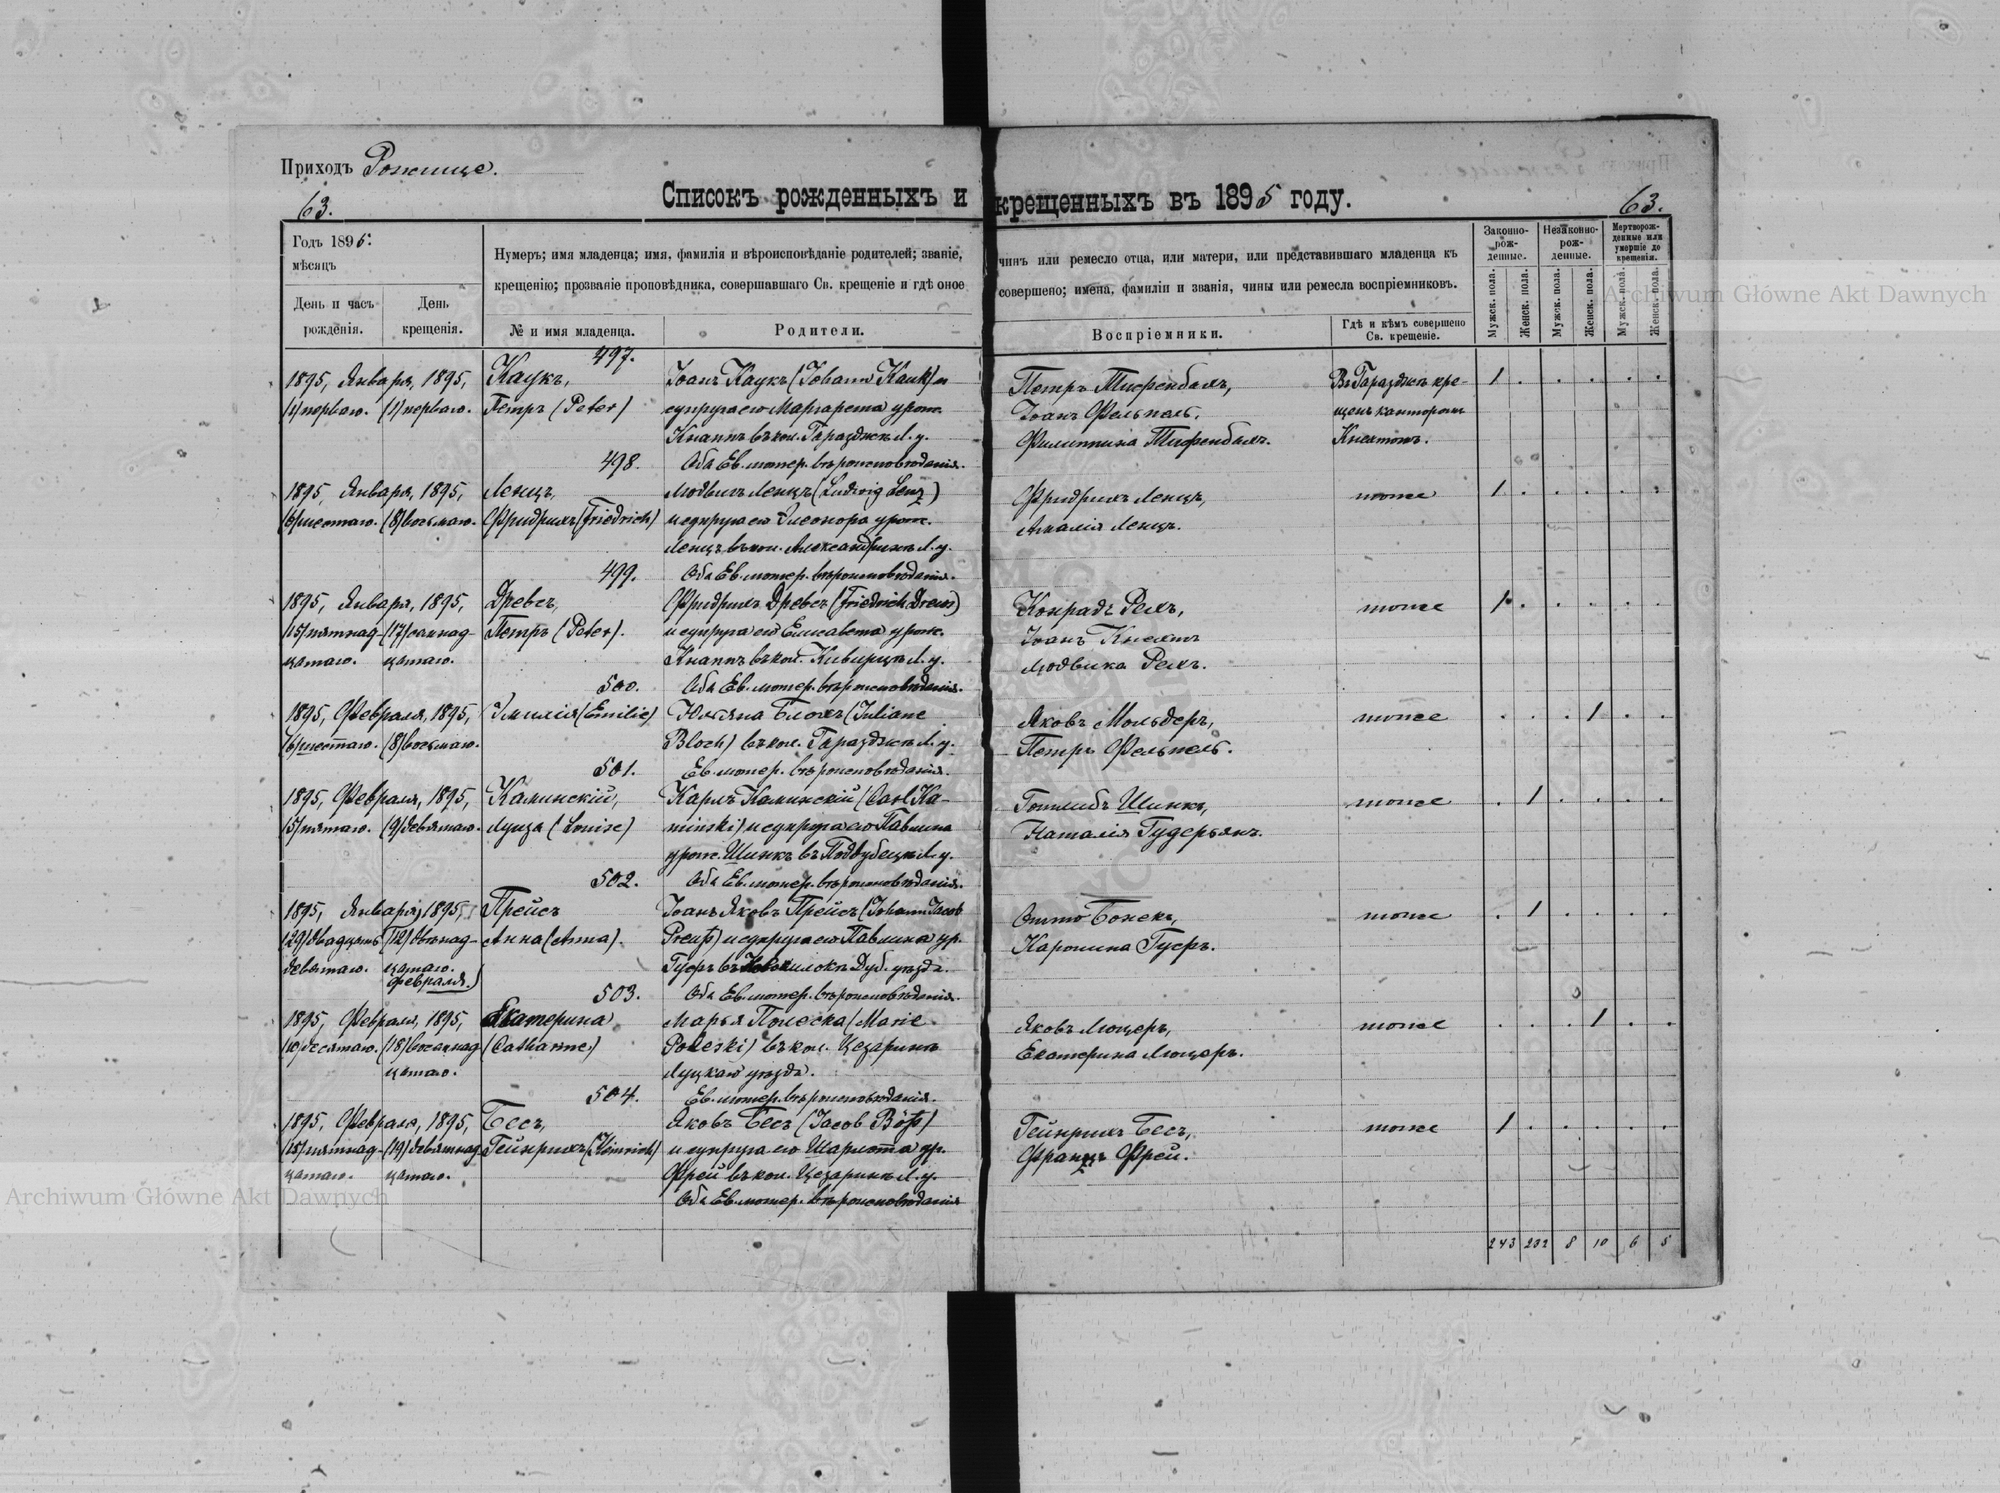 Приходъ Рожище.
Списокъ рожденныхъ и крещенныхъ въ 1895 году.
63.
63.
Годъ 1895:
мѣсяцъ
День и часъ рожденія.
День крещенія.
Нумеръ; имя младенца; имя, фамилія и вѣроисповѣданіе родителей; званіе, чинъ или ремесло отца, или матери, или представившаго младенца къ
крещенію; прозваніе проповѣдника, совершавшаго Св. крещеніе и гдѣ оное совершено; имена, фамиліи и званія, чины или ремесла воспріемниковъ.
№ и имя младенца.
Родители.
Воспріемники.
Гдѣ и кѣмъ совершено Св. крещеніе.
Законно-рож-денные.
Незаконно-рож-денные.
Мертворож-денные или умершіе до крещенія.
Мужск. пола.
Женск. пола.
Мужск. пола.
Женск. пола.
Мужск. пола.
Женск. пола.
497.
1895, Января, 1895,
(1) перваго. (1) перваго.
Каукъ,
Петръ (Peter)
Іоанъ Каукъ (Johann Kauk) и
супруга его Маргарета урож.
Кнаппъ въ кол. Гараздже Л. у.
Оба Ев. лютер. вѣроисповѣданія.
Петръ Тиефенбахъ,
Іоанъ Фельпель,
Филиппина Тиефенбахъ.
Въ Гараздже кре-
щенъ канторомъ
Кнехтомъ.
1 . . . . .
498.
1895, Января, 1895,
(6) шестаго. (8) восьмаго.
Ленцъ,
Фридрихъ (Friedrich)
Людвигъ Ленцъ (Ludwig Lenz)
и супруга его Элеонора урож.
Ленцъ, въ кол. Александринѣ Л. у.
Оба Ев. лютер. вѣроисповѣданія.
Фридрихъ Ленцъ,
Амалія Ленцъ.
тоже
1 . . . . .
499.
1895, Января, 1895,
(15) пятнад- (17) семнад-
цатаго. цатаго.
Древсъ,
Петръ (Peter).
Фридрихъ Древсъ (Friedrich Drews)
и супруга его Елисавета урож.
Кнаппъ въ кол. Киверцѣ Л. у.
Оба Ев. лютер. вѣроисповѣданія.
Конрадъ Рехъ,
Іоанъ Кнехтъ
Людвика Рехъ.
тоже
1 . . . . .
500.
1895, Февраля, 1895,
(6) шестаго. (8) восьмаго.
Эмилія (Emilie)
Юліяна Блохъ (Juliane
Bloch) въ кол. Гараздже Л. у.
Ев. лютер. вѣроисповѣданія.
Яковъ Мольдеръ,
Петръ Фельпель.
тоже
. . . 1 . .
501.
1895, Февраля, 1895,
(5) пятаго. (9) девятаго.
Каминскій,
Луиза (Louise)
Карлъ Каминскій (Carl Ka-
minski) и супруга его Павлина
урож. Шинкъ въ Подвубецѣ Л. у.
Оба Ев. лютер. вѣроисповѣданія.
Готлибъ Шинкъ,
Наталія Гудерьянъ.
тоже
. 1 . . . .
502.
1895, Января, 1895,
(29) двадцать (12) двѣнад-
девятаго. цатаго.
Февраля.)
Прейсъ
Анна (Anna).
Іоанъ Яковъ Прейсъ (Johann Jacob
Preuß) и супруга его Павлина ур.
Гусръ въ Дуб. уѣздѣ.
Оба Ев. лютер. вѣроисповѣданія.
Отто Бонекъ,
Каролина Гусръ.
тоже
. 1 . . . .
503.
1895, Февраля, 1895,
(10) десятаго. (18) восемнад-
цатаго.
Екатерина
(Catharine)
Марья Полеска (Marie
Poleski) въ кол. Цезаринѣ
Луцкаго уѣзда.
Ев. лютер. вѣроисповѣданія.
Яковъ Люцеръ,
Екатерина Люцеръ.
тоже
. . . 1 . .
504.
1895, Февраля, 1895,
(15) пятнад- (19) девятнад-
цатаго. цатаго.
Бесъ,
Гейнрихъ (Heinrich)
Яковъ Бесъ (Jacob Böß)
и супруга его Шарлотта ур.
Фрей въ кол. Цезаринѣ Л. у.
Оба Ев. лютер. вѣроисповѣданія
Гейнрихъ Бесъ,
Францъ Фрей.
тоже
1 . . . . .
243 232 8 10 6 5
Archiwum Główne Akt Dawnych
Archiwum Główne Akt Dawnych